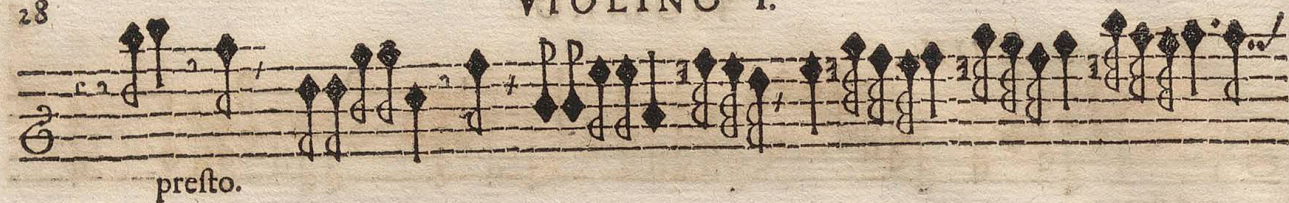 28
VIOLINO I.
preſto.